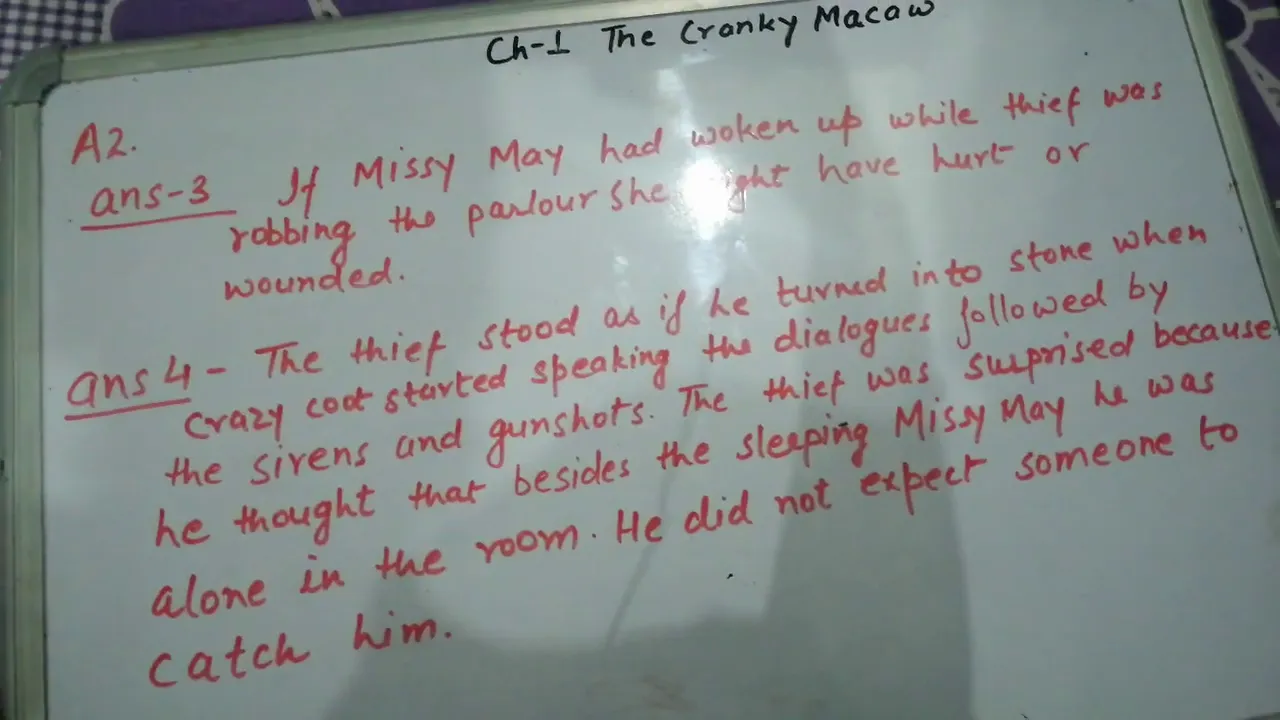 Ch-1 The Cranky Macaw
A2.
ans-3 If Missy May had woken up while thief was
robbing the parlour she might have hurt or
wounded.
ans 4 - The thief stood as if he turned into stone when
crazy coot started speaking the dialogues followed by
the sirens and gunshots. The thief was surprised because
he thought that besides the sleeping Missy May he was
alone in the room. He did not expect someone to
catch him.